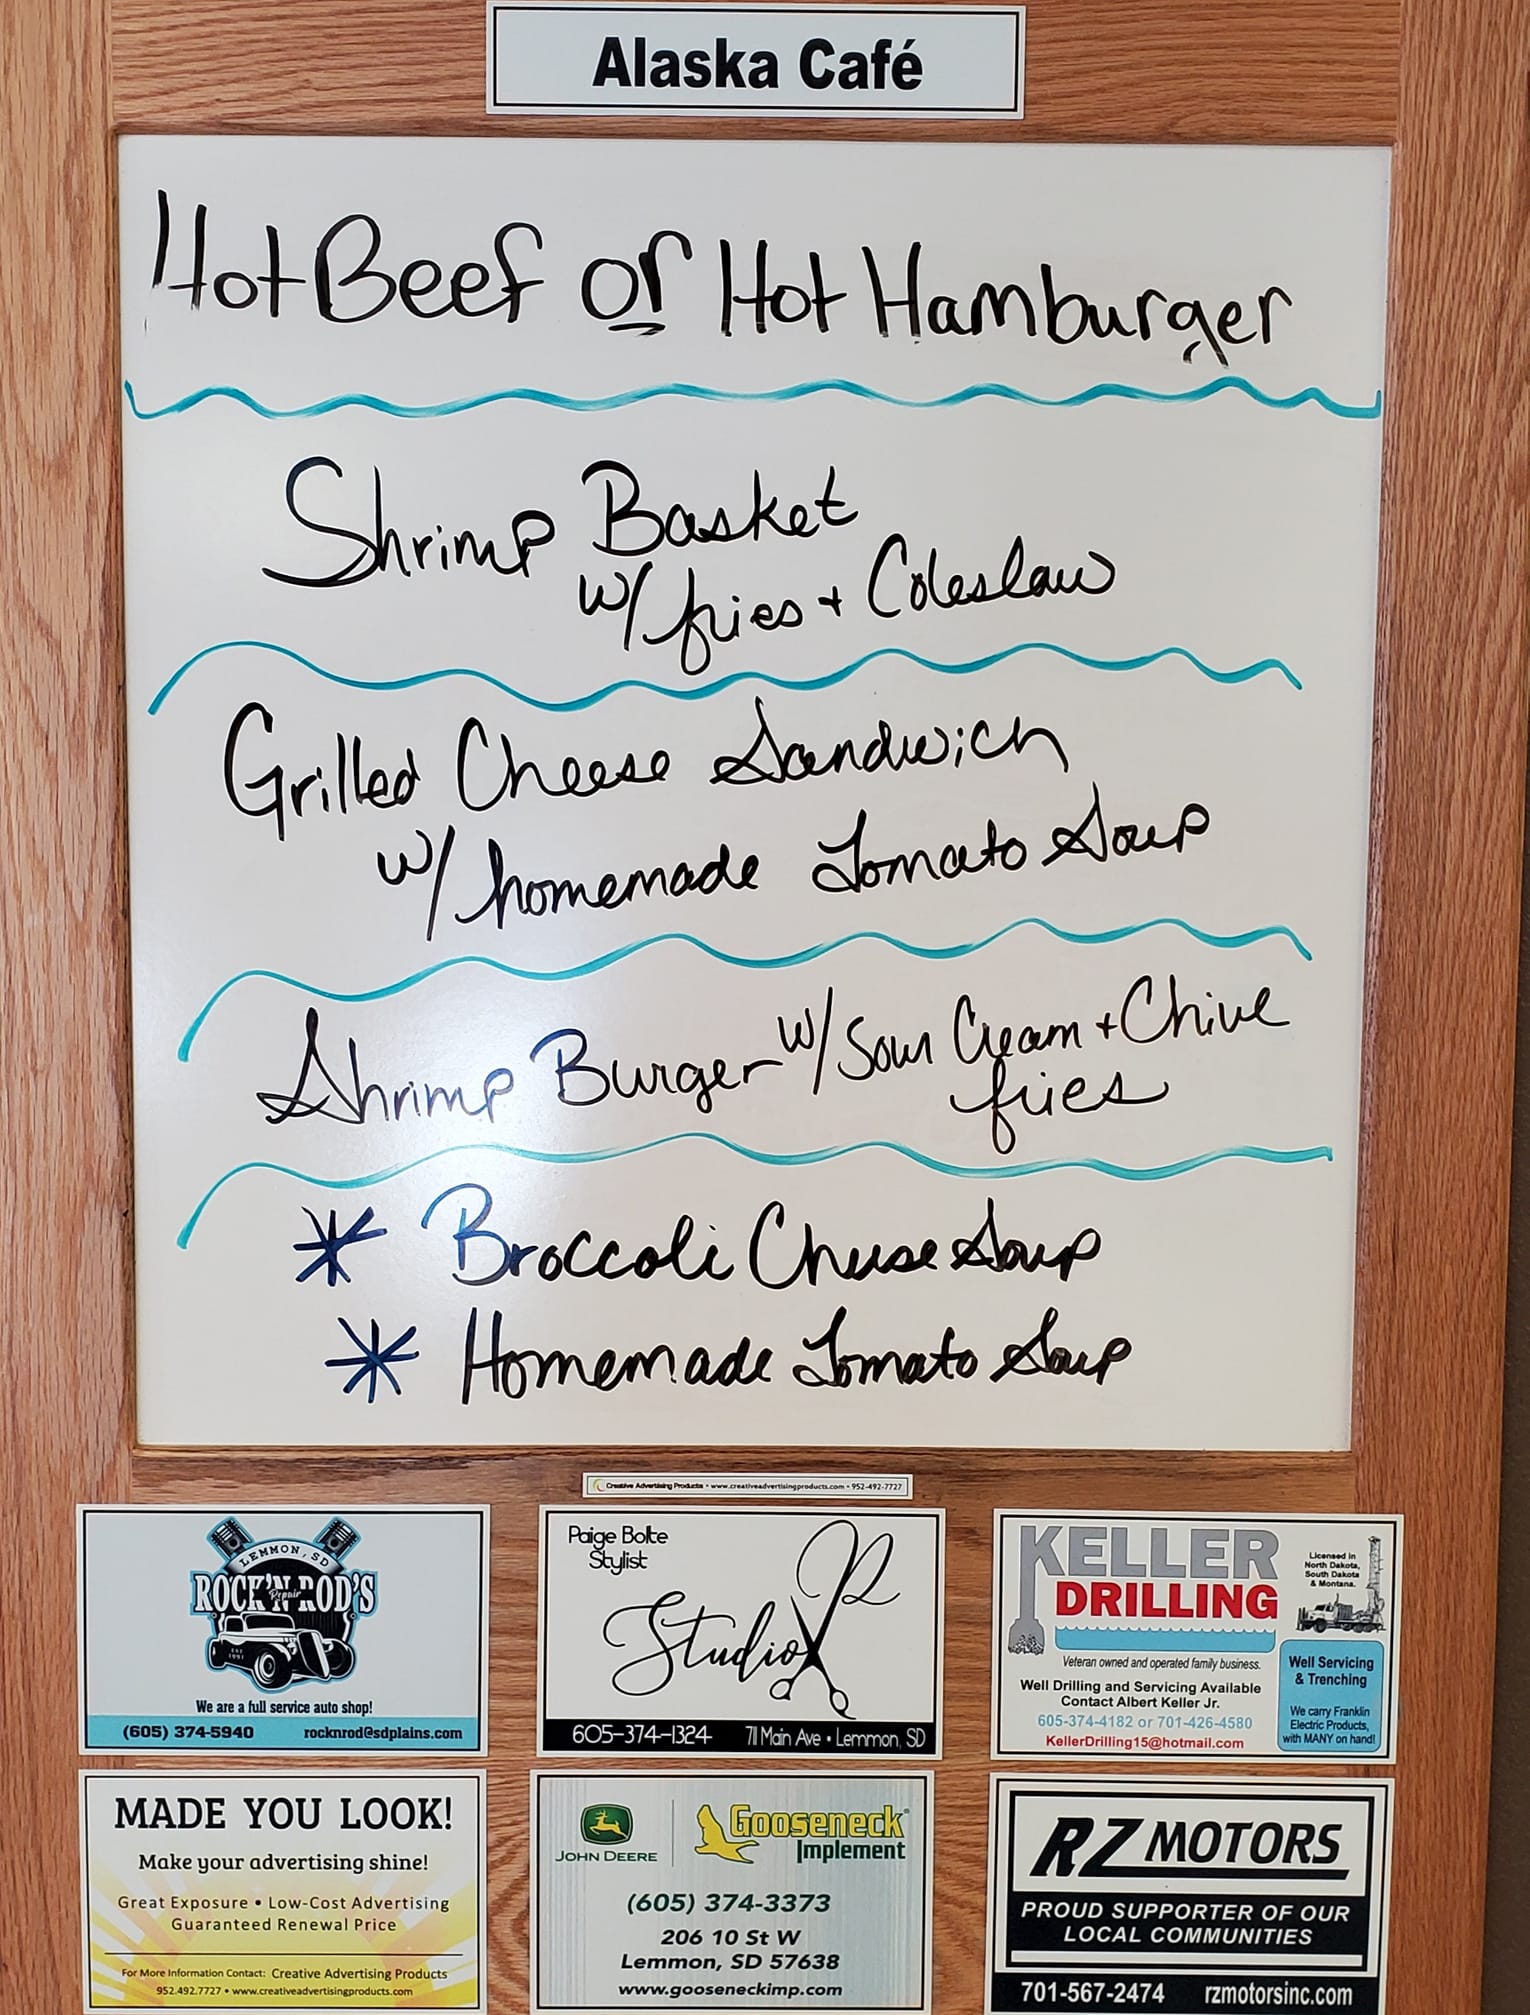 Alaska Café
Hot Beef or Hot Hamburger
Shrimp Basket
w/ fries + Coleslaw
Grilled Cheese Sandwich
w/ homemade Tomato Soup
Shrimp Burger w/ Sour Cream + Chive
fries
Broccoli Cheese Soup
Homemade Tomato Soup
Creative Advertising Products • www.creativeadvertisingproducts.com • 952-492-7727
LEMMON, SD
ROCK'N ROD'S
Repair
EST
1991
We are a full service auto shop!
(605) 374-5940 rocknrod@sdplains.com
Paige Bolte
Stylist
Studio R
605-374-1324 711 Main Ave • Lemmon, SD
KELLER
DRILLING
Licensed in
North Dakota,
South Dakota
& Montana.
Veteran owned and operated family business.
Well Drilling and Servicing Available
Contact Albert Keller Jr.
605-374-4182 or 701-426-4580
KellerDrilling15@hotmail.com
Well Servicing
& Trenching
We carry Franklin
Electric Products,
with MANY on hand!
MADE YOU LOOK!
Make your advertising shine!
Great Exposure • Low-Cost Advertising
Guaranteed Renewal Price
For More Information Contact: Creative Advertising Products
952.492.7727 • www.creativeadvertisingproducts.com
JOHN DEERE
Gooseneck
Implement
(605) 374-3373
206 10 St W
Lemmon, SD 57638
www.gooseneckimp.com
RZ MOTORS
PROUD SUPPORTER OF OUR
LOCAL COMMUNITIES
701-567-2474 rzmotorsinc.com